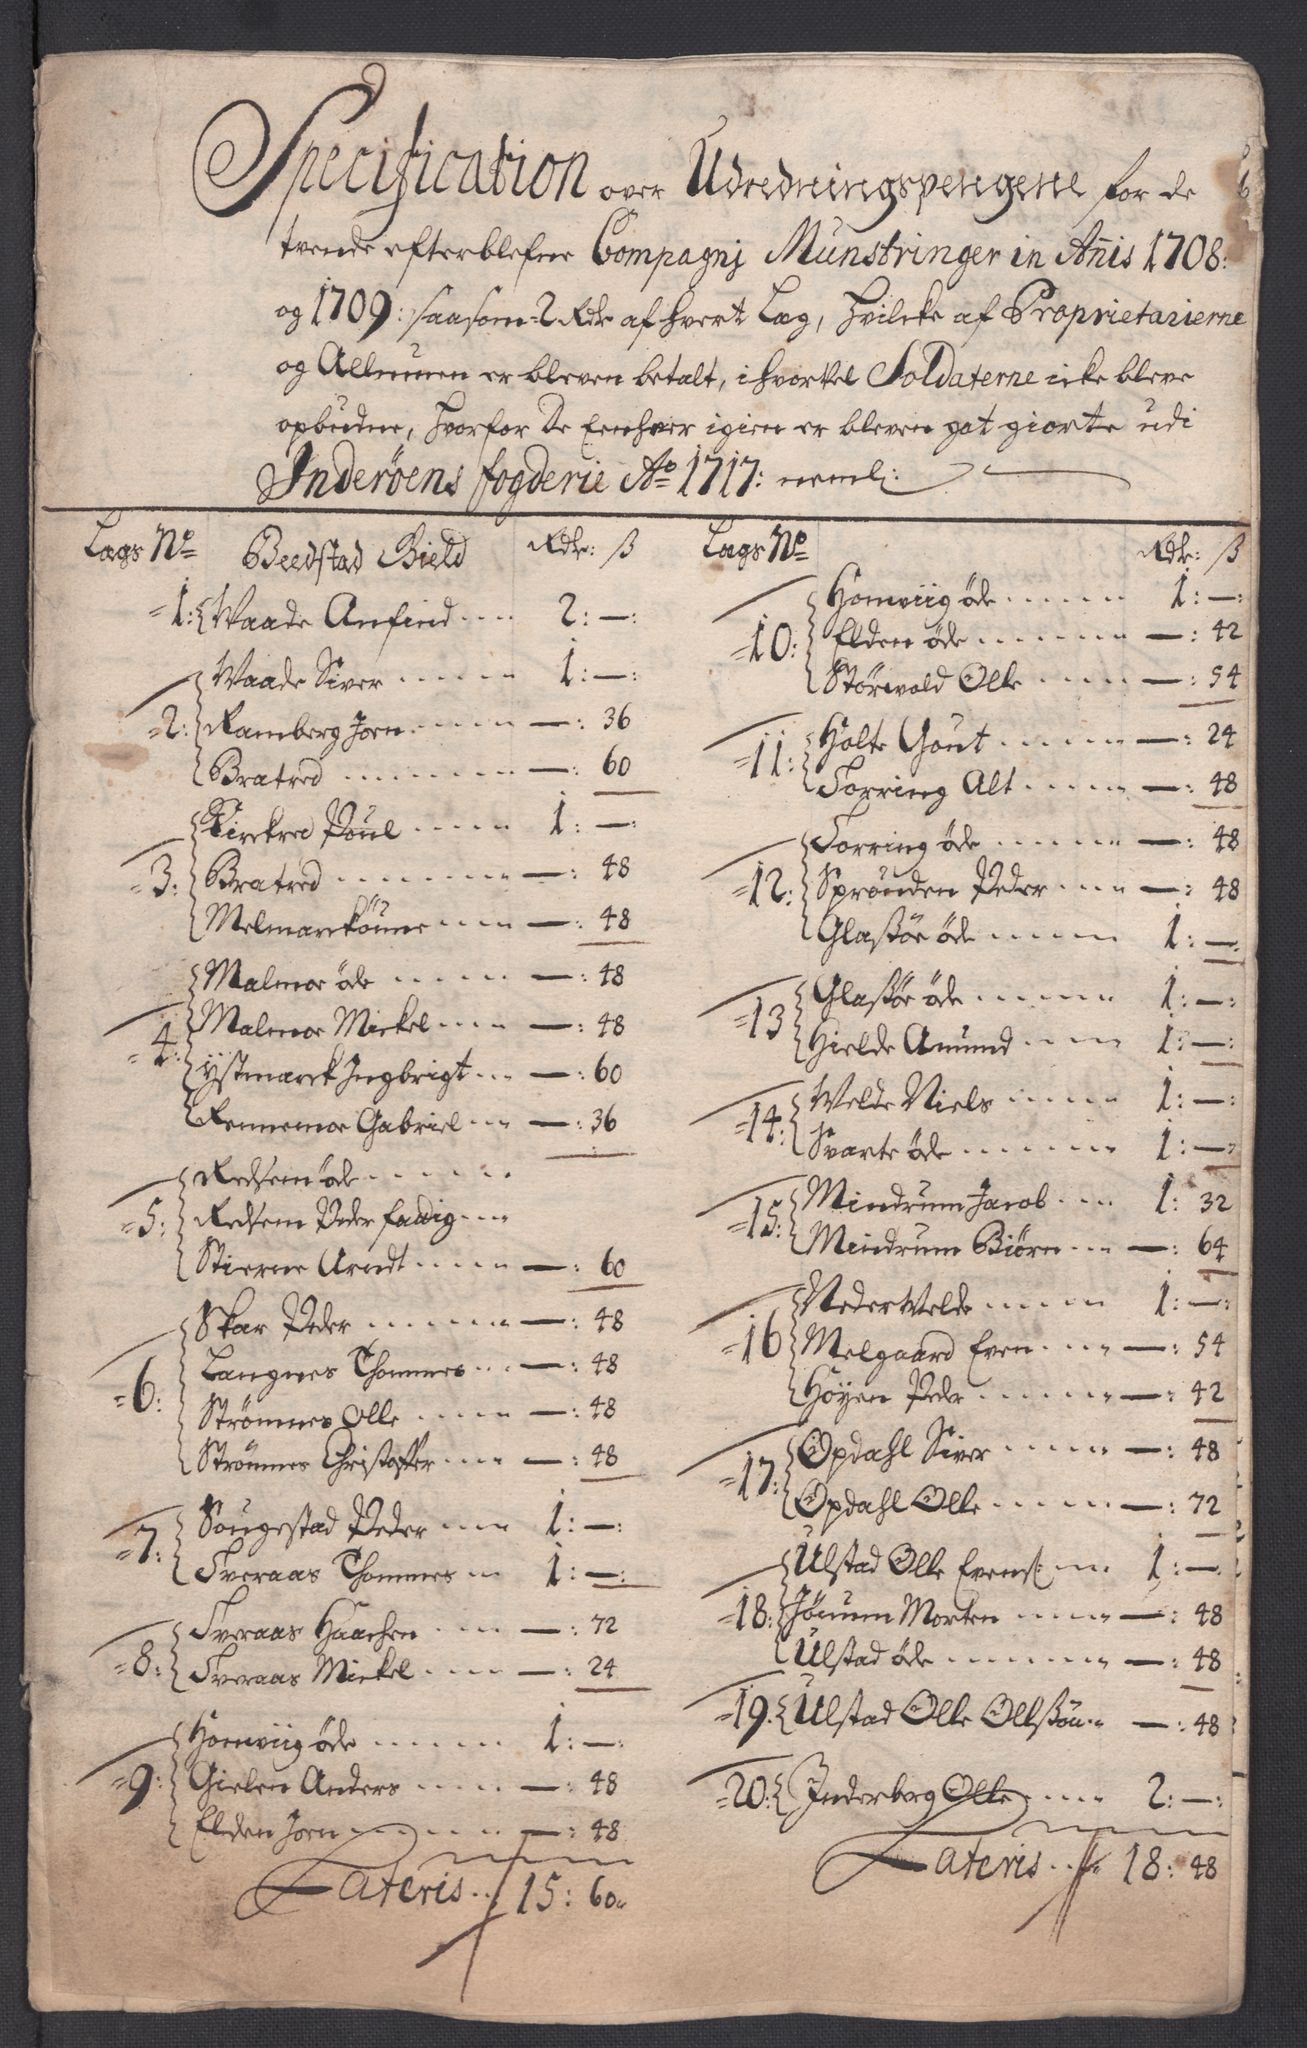 Specification over Udredningspengene for de
tvende efterblefne Compagnj Munstringer in Añis 1708:
og 1709: saasom 2 Rdr af hvert Læg, hvilcke af Proprietarierne
og Allmuen er bleven betalt, i hvorvel Soldaterne icke bleve
opbudne, hvorfor De Eenhver igien er bleven got giorte udi
Inderöens fogderie Ao 1717: neml:
Lægs No Beedstad Gield Rdr: ß
1: Waade Anfind 2: —:
Waade Siver 1: —:
2: Ramberg Joen —: 36
Bratred —: 60
Kirckred Poul 1: —:
3: Bratred —: 48
Melmarckönne —: 48
Malmoe öde —: 48
4: Malmoe Mickel —: 48
Ystmarck Ingbrigt —: 60
Rennemoe Gabriel —: 36
Redsem öde
5: Redsem Peder fattig
Stierne Arndt —: 60
Skar Peder —: 48
6: Langnes Thommes —: 48
Strömnes Olle —: 48
Strömnes Christoffer —: 48
7: Sougestad Peder 1: —:
Tveraas Thommes 1: —:
8: Tveraas Haachen —: 72
Tveraas Mickel —: 24
Homviig öde 1: —:
9: Gielen Anders —: 48
Elden Joen —: 48
Lateris 15: 60
Lægs No Rdr: ß
Homviig öde 1: —:
10: Elden öde —: 42
Störvold Olle —: 54
11: Holte Gout —: 24
Torring Alt —: 48
Torring öde —: 48
12: Sprouden Peder —: 48
Glassöe öde 1: —:
13 Glassöe öde 1: —:
Hielde Amund 1: —:
14: Welde Niels 1: —:
Svarte öde 1: —:
15: Mindrum Jacob 1: 32
Mindrum Biörn —: 64
Neder Welde 1: —:
16 Melgaard Even —: 54
Höyen Peder —: 42
17: Opdahl Siver —: 48
Opdahl Olle —: 72
Ulstad Olle Evens: 1: —:
18: Jöcum Morten —: 48
Ulstad öde —: 48
19: Ulstad Olle Ollssön —: 48
20: Inderberg Olle 2: —:
Lateris 18: 48